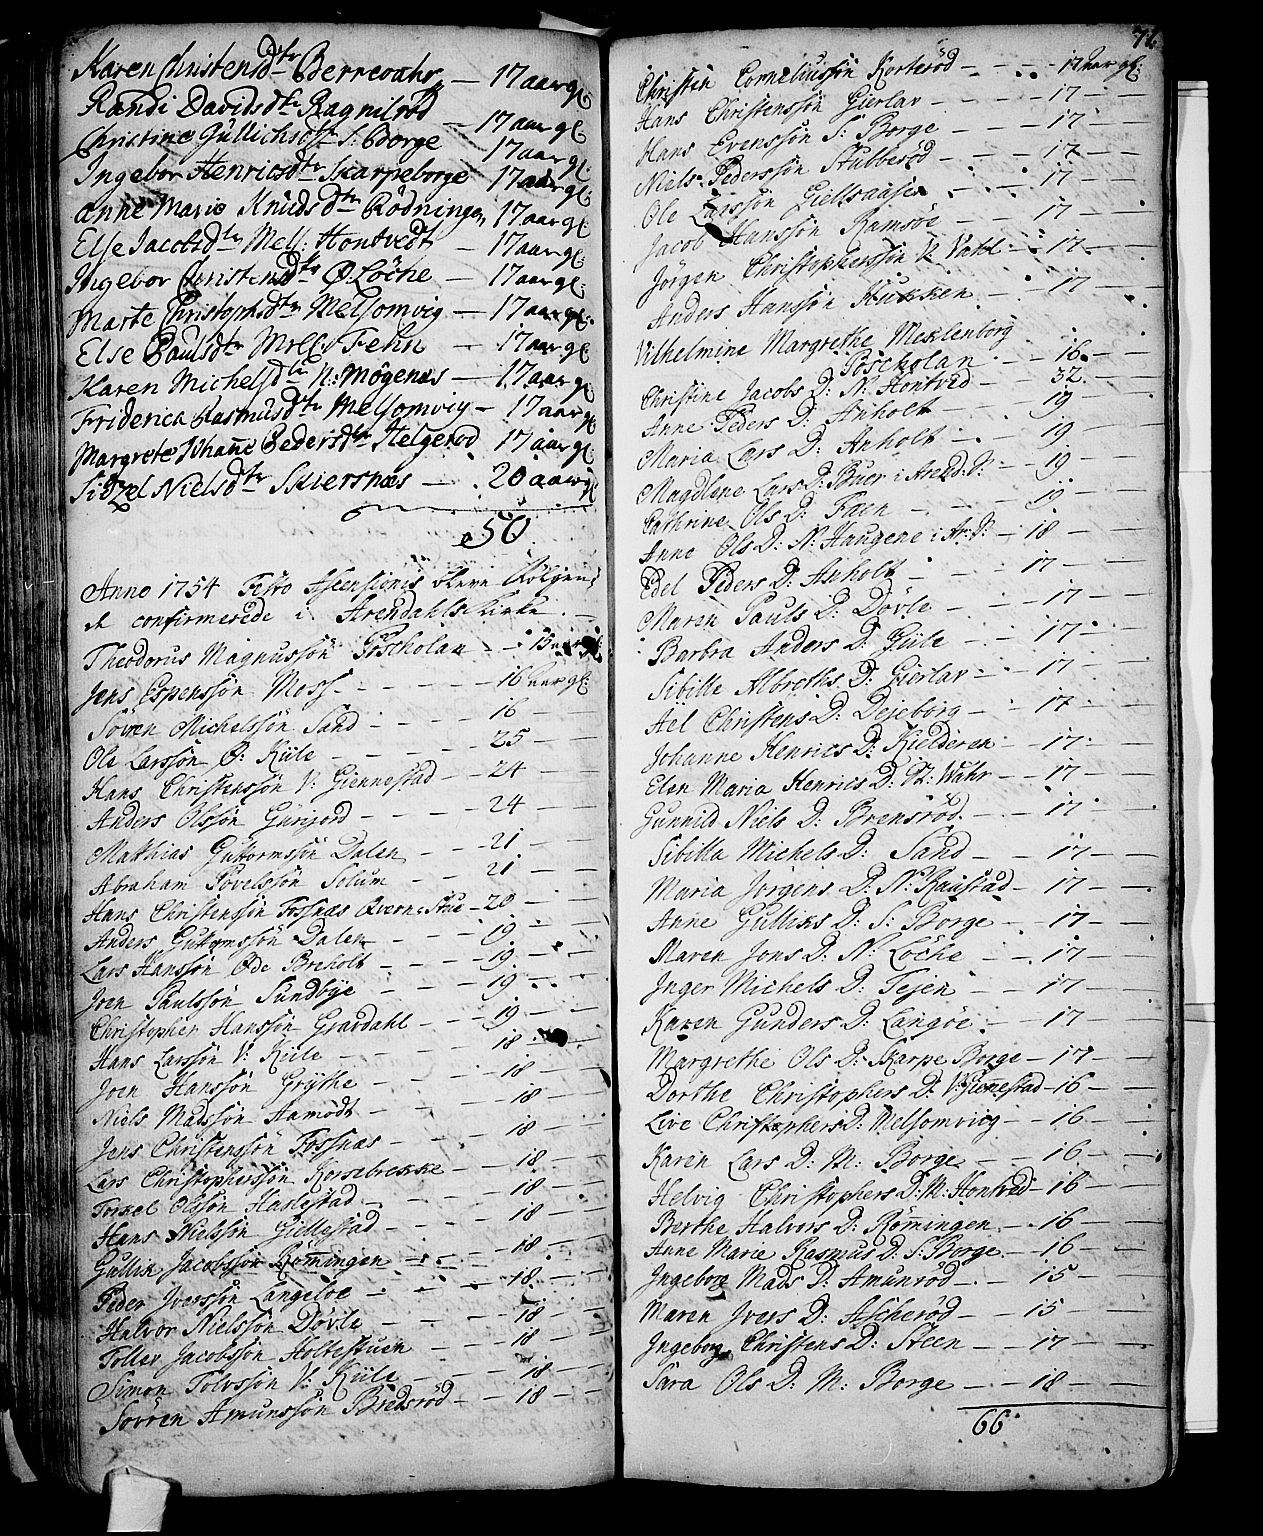 Karen Christensdtr Berrevahr — 17 aar gl:
Randi Davidsdtr Ragnilrød — 17 aar gl:
Christine Gullichsdtr S: Borge 17 aar gl:
Ingebor Henricsdtr Skarpeborge 17 aar gl:
Anne Marie Knudsdtr Rødningen 17 aar gl:
Else Jacobsdtr Mel: Hontvedt — 17 aar gl:
Ingebor Christensdtr Ø Löche — 17 aar gl:
Marte Christophsdtr Melsomvig — 17 aar gl:
Else Paulsdtr Mell: Fehn — 17 aar gl
Karen Michelsdtr N: Mögenæs — 17 aar gl
Friderica Rasmusdtr Melsomvig — 17 aar gl
Margrete Johanne Pedersdtr Helgerod 17 aar gl:
Sidzel Nielsdtr Skiersnæs — 20 aar gl
50
Anno 1754 Festo Ascensionis bleve følgen
de confirmerede i Arendahls Kirke
Theodorus Magnussön Föscholan — 15 aar gl:
Jens Espenssön Moss — 16 aar gl:
Sören Michelssön Sand — 16 —
Ole Larssön Ø: Kiile — 25 —
Hans Christenssön V: Giennestad — 24 —
Anders Olssön Gurijord — 24 —
Matthias Guttormssön Dalen — 21 —
Abraham Povelssön Solum — 21 —
Hans Christenssön Fossnæs Qvern-Stue — 20 —
Anders Guttormssön Dalen — 19 —
Lars Hanssön Øde Breholt — 19 —
Joen Paulssön Sundbye — 19
Christopher Hanssön Gravdahl — 19 —
Hans Larssön V: Kiile — 18
Joen Hanssön Grythe — 18 —
Niels Madssön Aamodt — 18 —
Jens Christenssön Fossnæs — 18 —
Lars Christophersson Korsebrekke — 18 —
Torkel Olssön Haslestad — 18 —
Hans Nielssön Gillestad — 18 —
Gullik Jacobssön Römingen — 18 —
Peder Iverssön Langeløe — 18 —
Halvor Nielssön Dövle — 18 —
Toller Jacobssön Holtestuen — 18 —
Simon Tolvssön V: Kiile — 18 —
Sörren Amunssön Bredsröd — 18 —
76
Christen Corneliussön Korterød — 17 aar gl:
Hans Christenssön Gierlav — 17 —
Hans Evenssön S: Borge — 17 —
Niels Pederssön Stubberöd — 17 —
Ole Larssön Giellsaasen — 17 —
Jacob Hanssön Ramsöe — 17 —
Jörgen Christopherssön N: Vahl — 17 —
Anders Hanssön Kukken — 17 —
Vilhelmine Margrethe Meklenborg
Föscholan — 16
Christine Jacobs D: N: Hontvid — 32
Anne Peders D: Anholt — 19
Maria Lars D: Anholt — 19
Magdlene Lars D: Buer i Arend: D: — 19
Cathrine Ols D: Faen — 19 —
Anne Ols D: N: Haugene i Ar: D: — 18 —
Edel Peders D: Anholt — 17
Maren Pauls D: Dövle — 17 —
Barbra Anders D: Giile — 17 —
Sibille Albreths D: Gierlav — 17 —
Äel Christens D: Dejeborg — 17 —
Johanne Henrics D: Kielderen — 17 —
Elen Maria Henrics D: N: Wahr — 17 —
Gunnild Niels D: Brensröd — 17 —
Sibilla Michels D: Sand — 17 —
Maria Jörgens D: N: Raustad — 17 —
Anne Gulliks D: S: Borge — 17 —
Maren Jons D: N: Löche — 17 —
Inger Michels D: Tejen — 17 —
Karen Gunders D: Langöe — 17 —
Margrethe Ols D: Skarpe Borge — 17 —
Dorthe Christophers D: V: Giennestad — 16 —
Live Christophers D: Melsomviig — 16 —
Karen Lars D: M: Borge — 16 —
Helvig Christophers D: M: Hontvid — 16 —
Berthe Halvors D: Römingen — 16 —
Anne Marie Rasmus D: S: Borge — 16 —
Ingeborg Mads D: Amunröd — 15 —
Maren Ivers D: Ascheröd — 15 —
Ingeborg Christens D: Steen — 17 —
Sara Ols D: M: Borge — 18 —
66